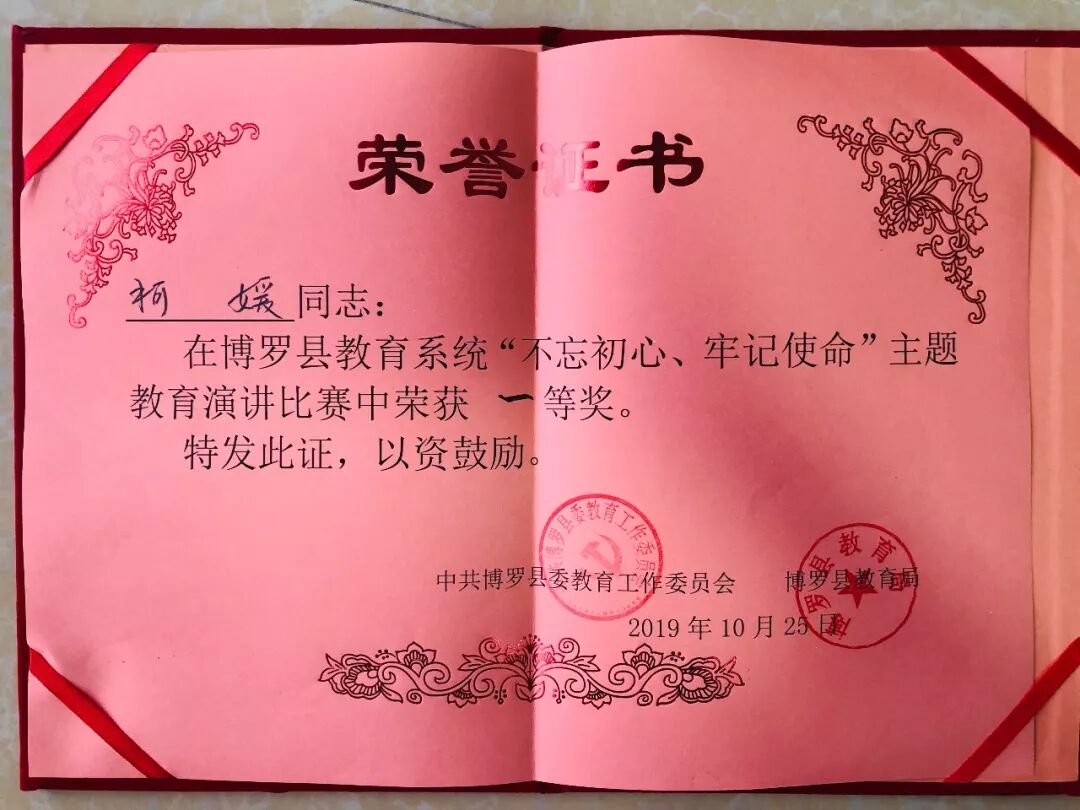 荣誉证书
柯 媛 同志：
在博罗县教育系统“不忘初心、牢记使命”主题
教育演讲比赛中荣获 一 等奖。
特发此证，以资鼓励。
中共博罗县委教育工作委员会 博罗县教育局
2019 年 10 月 25 日
博罗县委教育工作委员
博罗县教育局